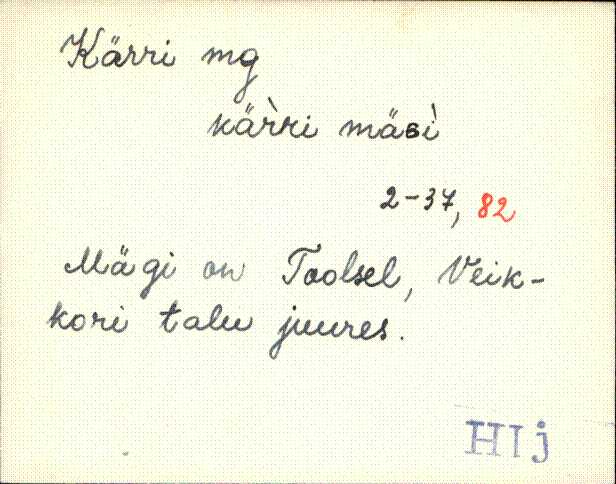 Kärri mg
kär̀ri mäɢì
2-37, 82
Mägi on Toolsel, Veik-
kori talu juures.
HIj